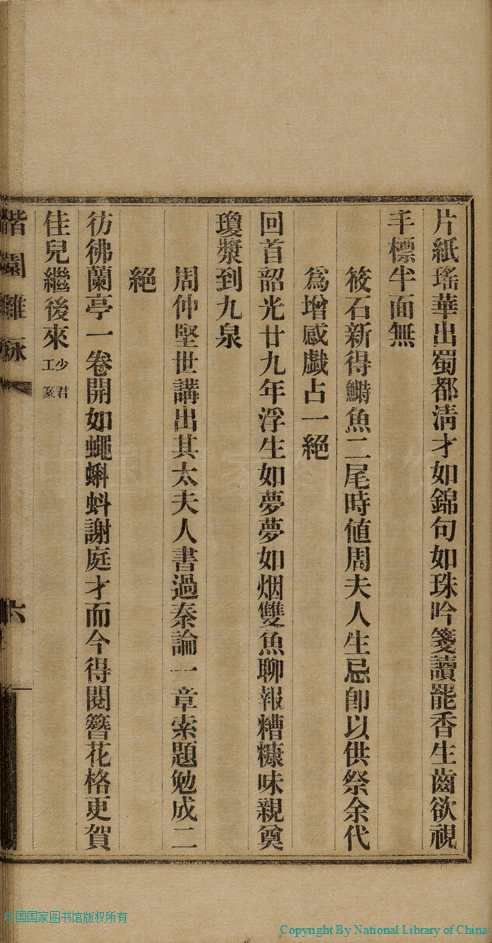 片紙瑤華出蜀都清才如錦句如珠吟箋讀罷香生齒欲視
丰標半面無
筱石新得鰣魚二尾時値周夫人生忌卽以供祭余代
爲增感戲占一絕
回首韶光廿九年浮生如夢夢如烟雙魚聊報糟糠味親奠
瓊漿到九泉
周仲堅世講出其太夫人書過秦論一章索題勉成二
絕
彷彿蘭亭一卷開如蠅蝌蚪謝庭才而今得閱簪花格更賀
佳兒繼後來少君工篆
楷園雜詠
六
中国国家图书馆版权所有
Copyright By National Library of China